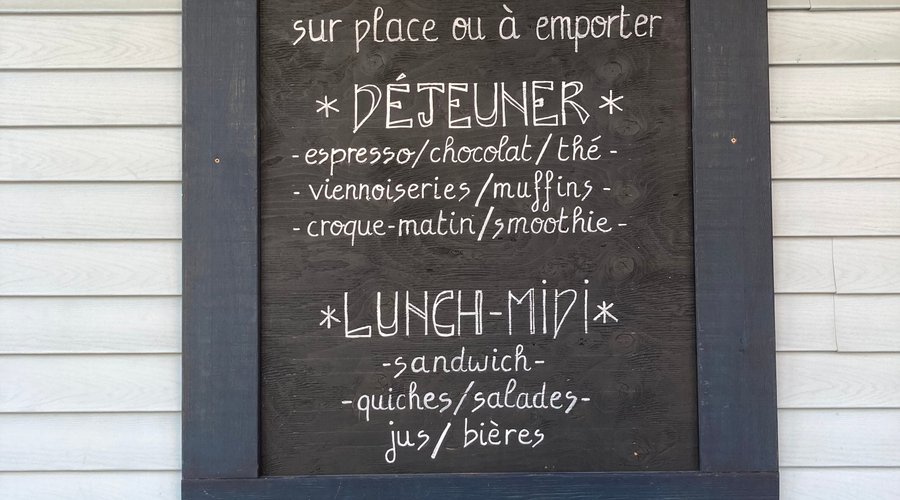 sur place ou à emporter
* DÉJEUNER *
- espresso/chocolat/thé -
- viennoiseries/muffins -
- croque-matin/smoothie -
*LUNCH-MIDI*
-sandwich-
-quiches/salades-
jus/bières